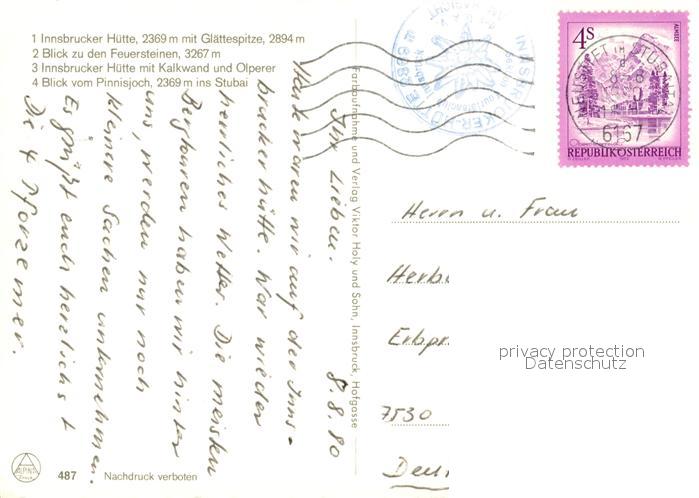 1 Innsbrucker Hütte, 2369 m mit Glättespitze, 2894 m
2 Blick zu den Feuersteinen, 3267 m
3 Innsbrucker Hütte mit Kalkwand und Olperer
4 Blick vom Pinnisjoch, 2369 m ins Stubai
8.8.80
Ihr Lieben.
Heute waren wir auf der Inns-
bruckerhütte. War wieder
herrliches Wetter. Die meisten
Bergtouren haben wir hinter
uns, werden nur noch
kleinere Sachen unternehmen.
Es grüßt euch herzlichst
Die 4 Pforzemer.
Farbaufnahme und Verlag Viktor Holy und Sohn, Innsbruck, Hofgasse
487 Nachdruck verboten
INNSBRUCKER-HÜTTE
4S
ALMSEE
6167
REPUBLIK ÖSTERREICH
Herrn u. Frau
Herb
Erbpr
7530
privacy protection
Datenschutz